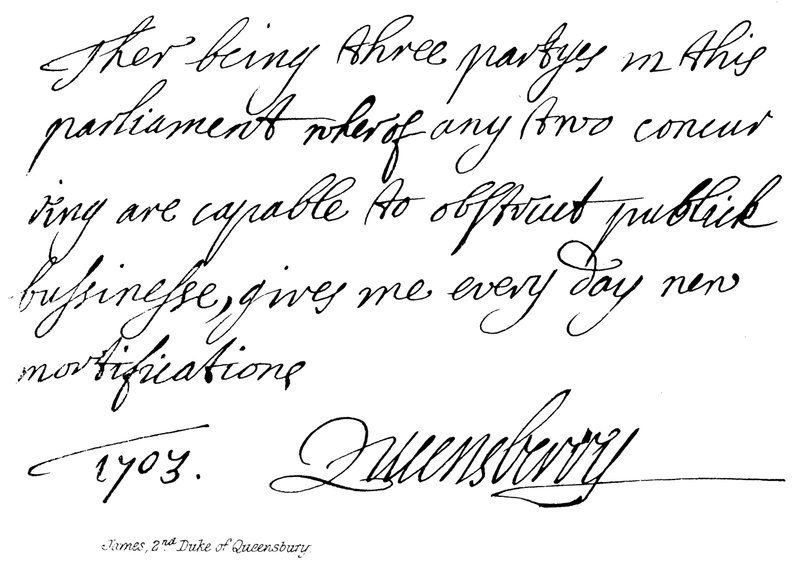 Ther being three partyes in this
parliament wherof any two concur
ring are capable to obstruct publick
bussinesse, gives me every day new
mortifications
1703.
Queensberry
James, 2nd Duke of Queensbury.